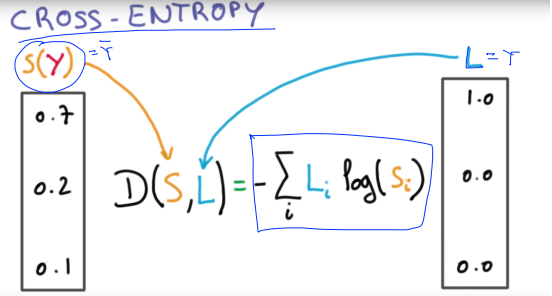 CROSS-ENTROPY
S(Y) = Ȳ
L = Y
0.7
0.2
0.1
D(S,L) = -∑ᵢ Lᵢ log(Sᵢ)
1.0
0.0
0.0